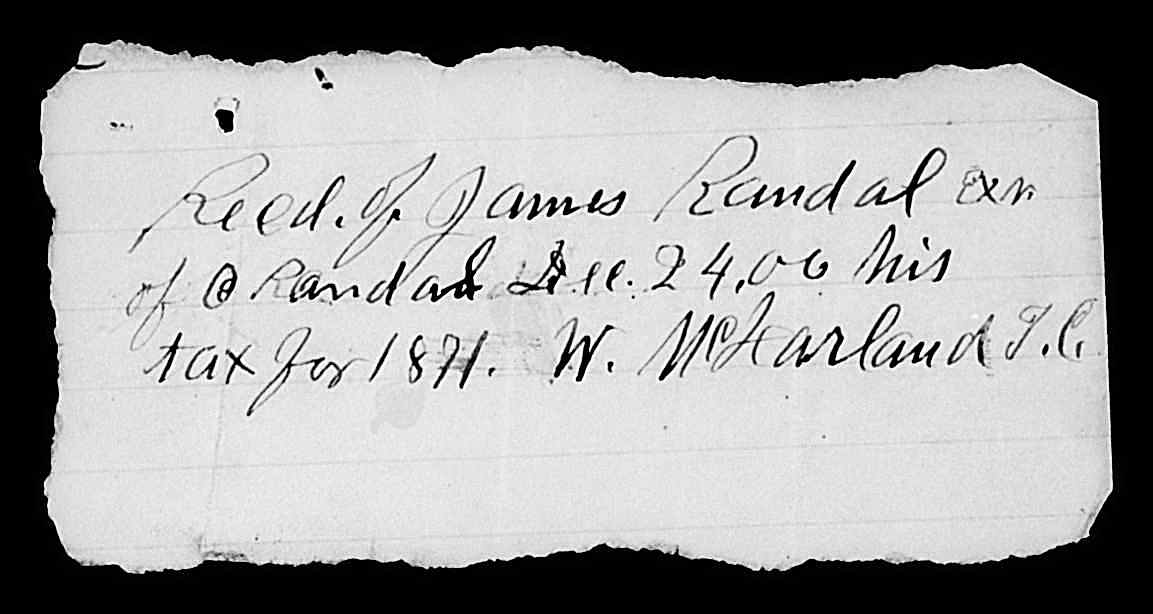 Recd. of James Randal exr
of O Randal Dec. 24.06 his
tax for 1871. W. McFarland T.C.